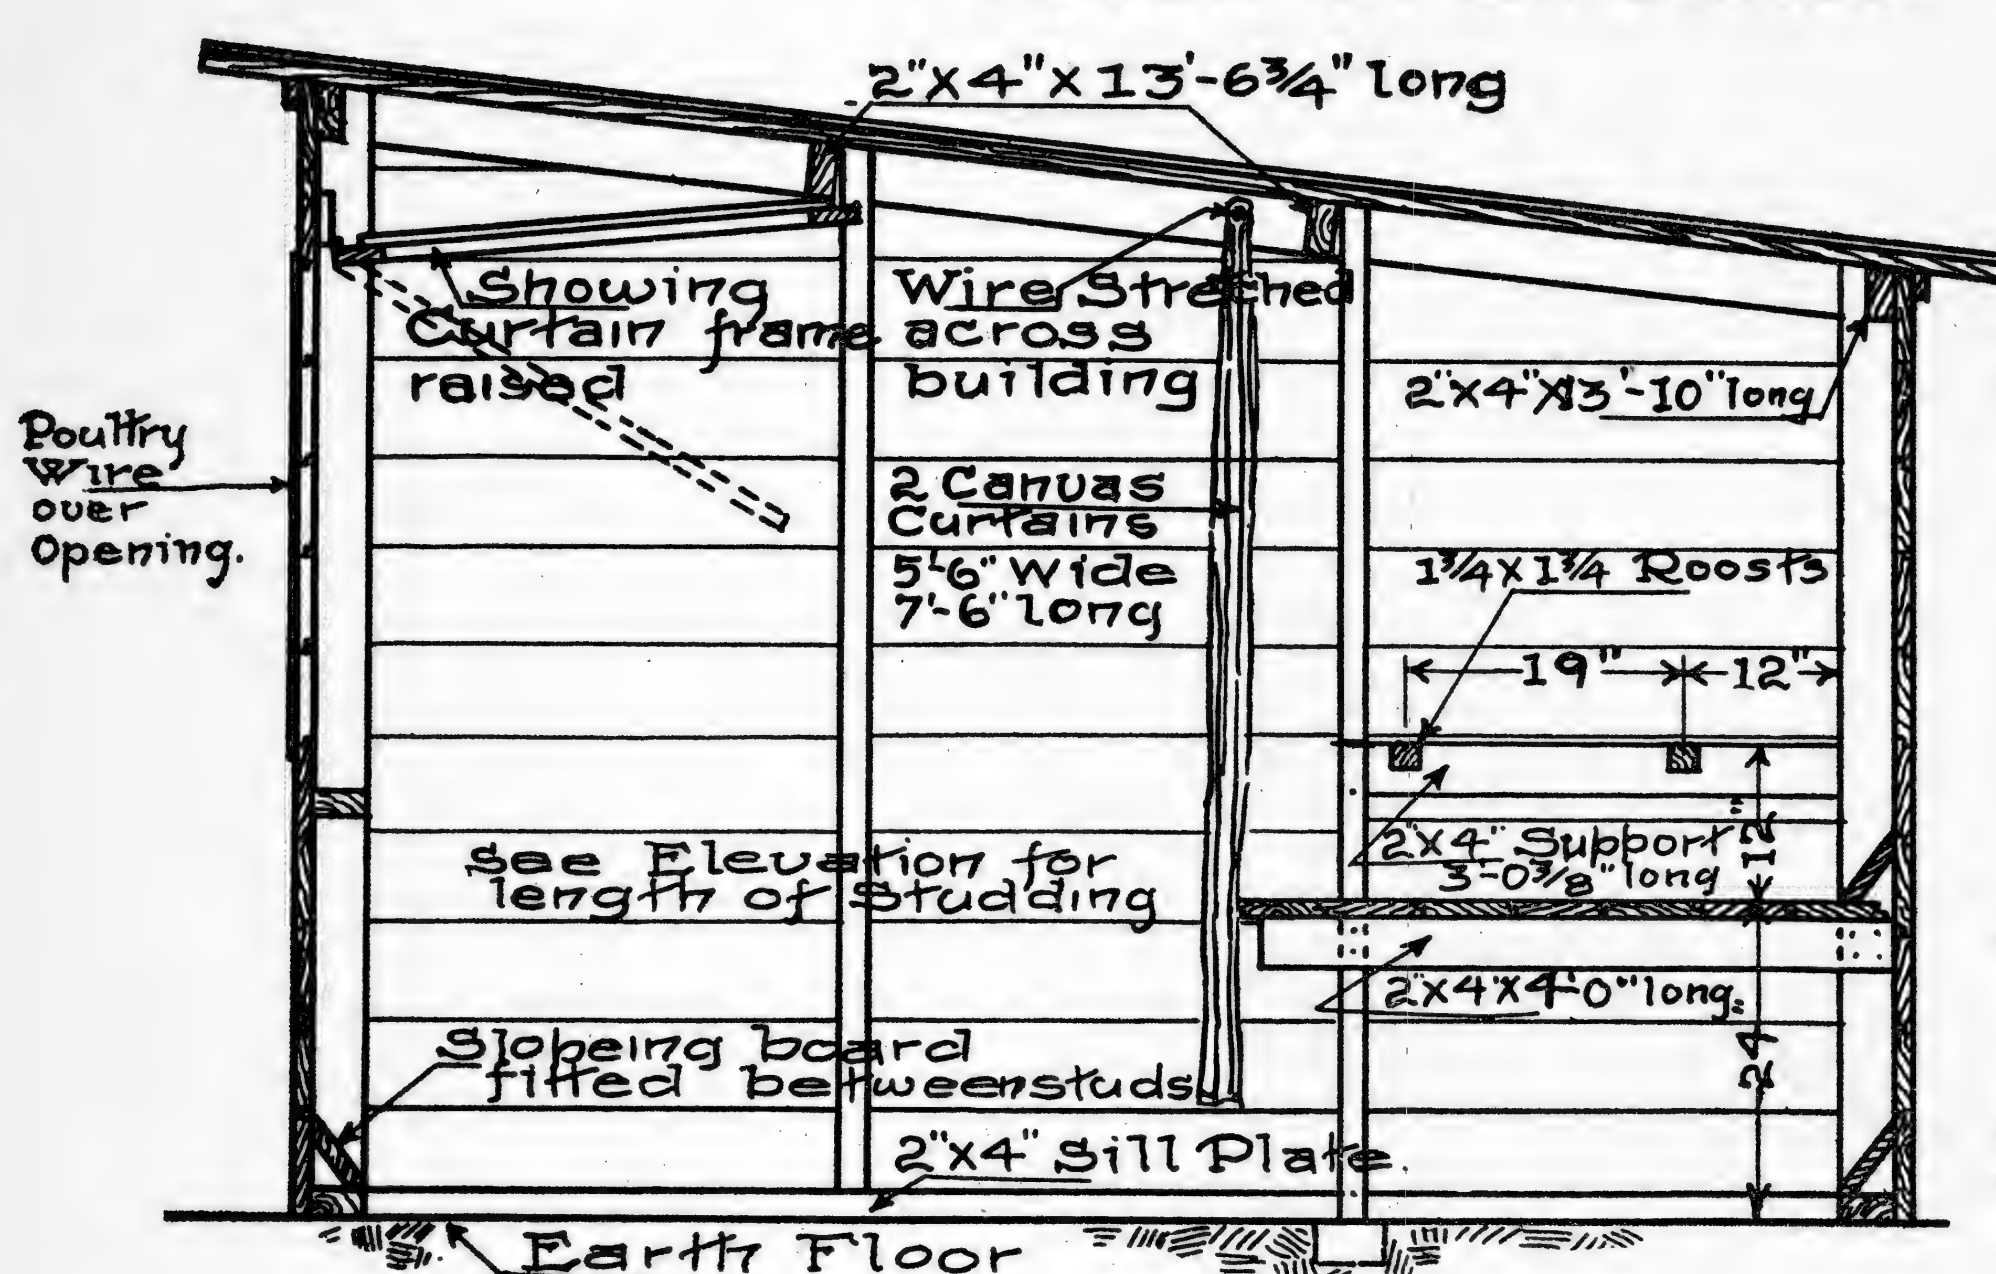 2"X4"X13'-6¾" long
Showing
Curtain frame
raised
Wire Stretched
across
building
2"X4"X13'-10" long
Poultry
Wire
over
Opening.
2 Canvas
Curtains
5'-6" Wide
7'-6" long
1¾X1¾ Roosts
19"
12"
2"X4" Support
3'-0⅜" long
12"
See Elevation for
length of Studding
2"X4"X4'-0" long.
24"
Slopeing board
fitted between studs
2"X4" Sill Plate.
Earth Floor